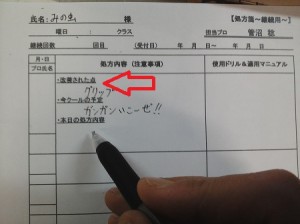 氏名: みの虫 様 【処方箋～継続用～】
曜日: クラス 担当プロ 菅沼 稔
継続回数 回目 (受付日) 年 月 日～ 年 月 日
月・日 処方内容（注意事項） 使用ドリル&適用マニュアル
プロ氏名
・改善された点
グリップ
・今クールの予定
ガンガンいこーぜ!!
・本日の処方内容